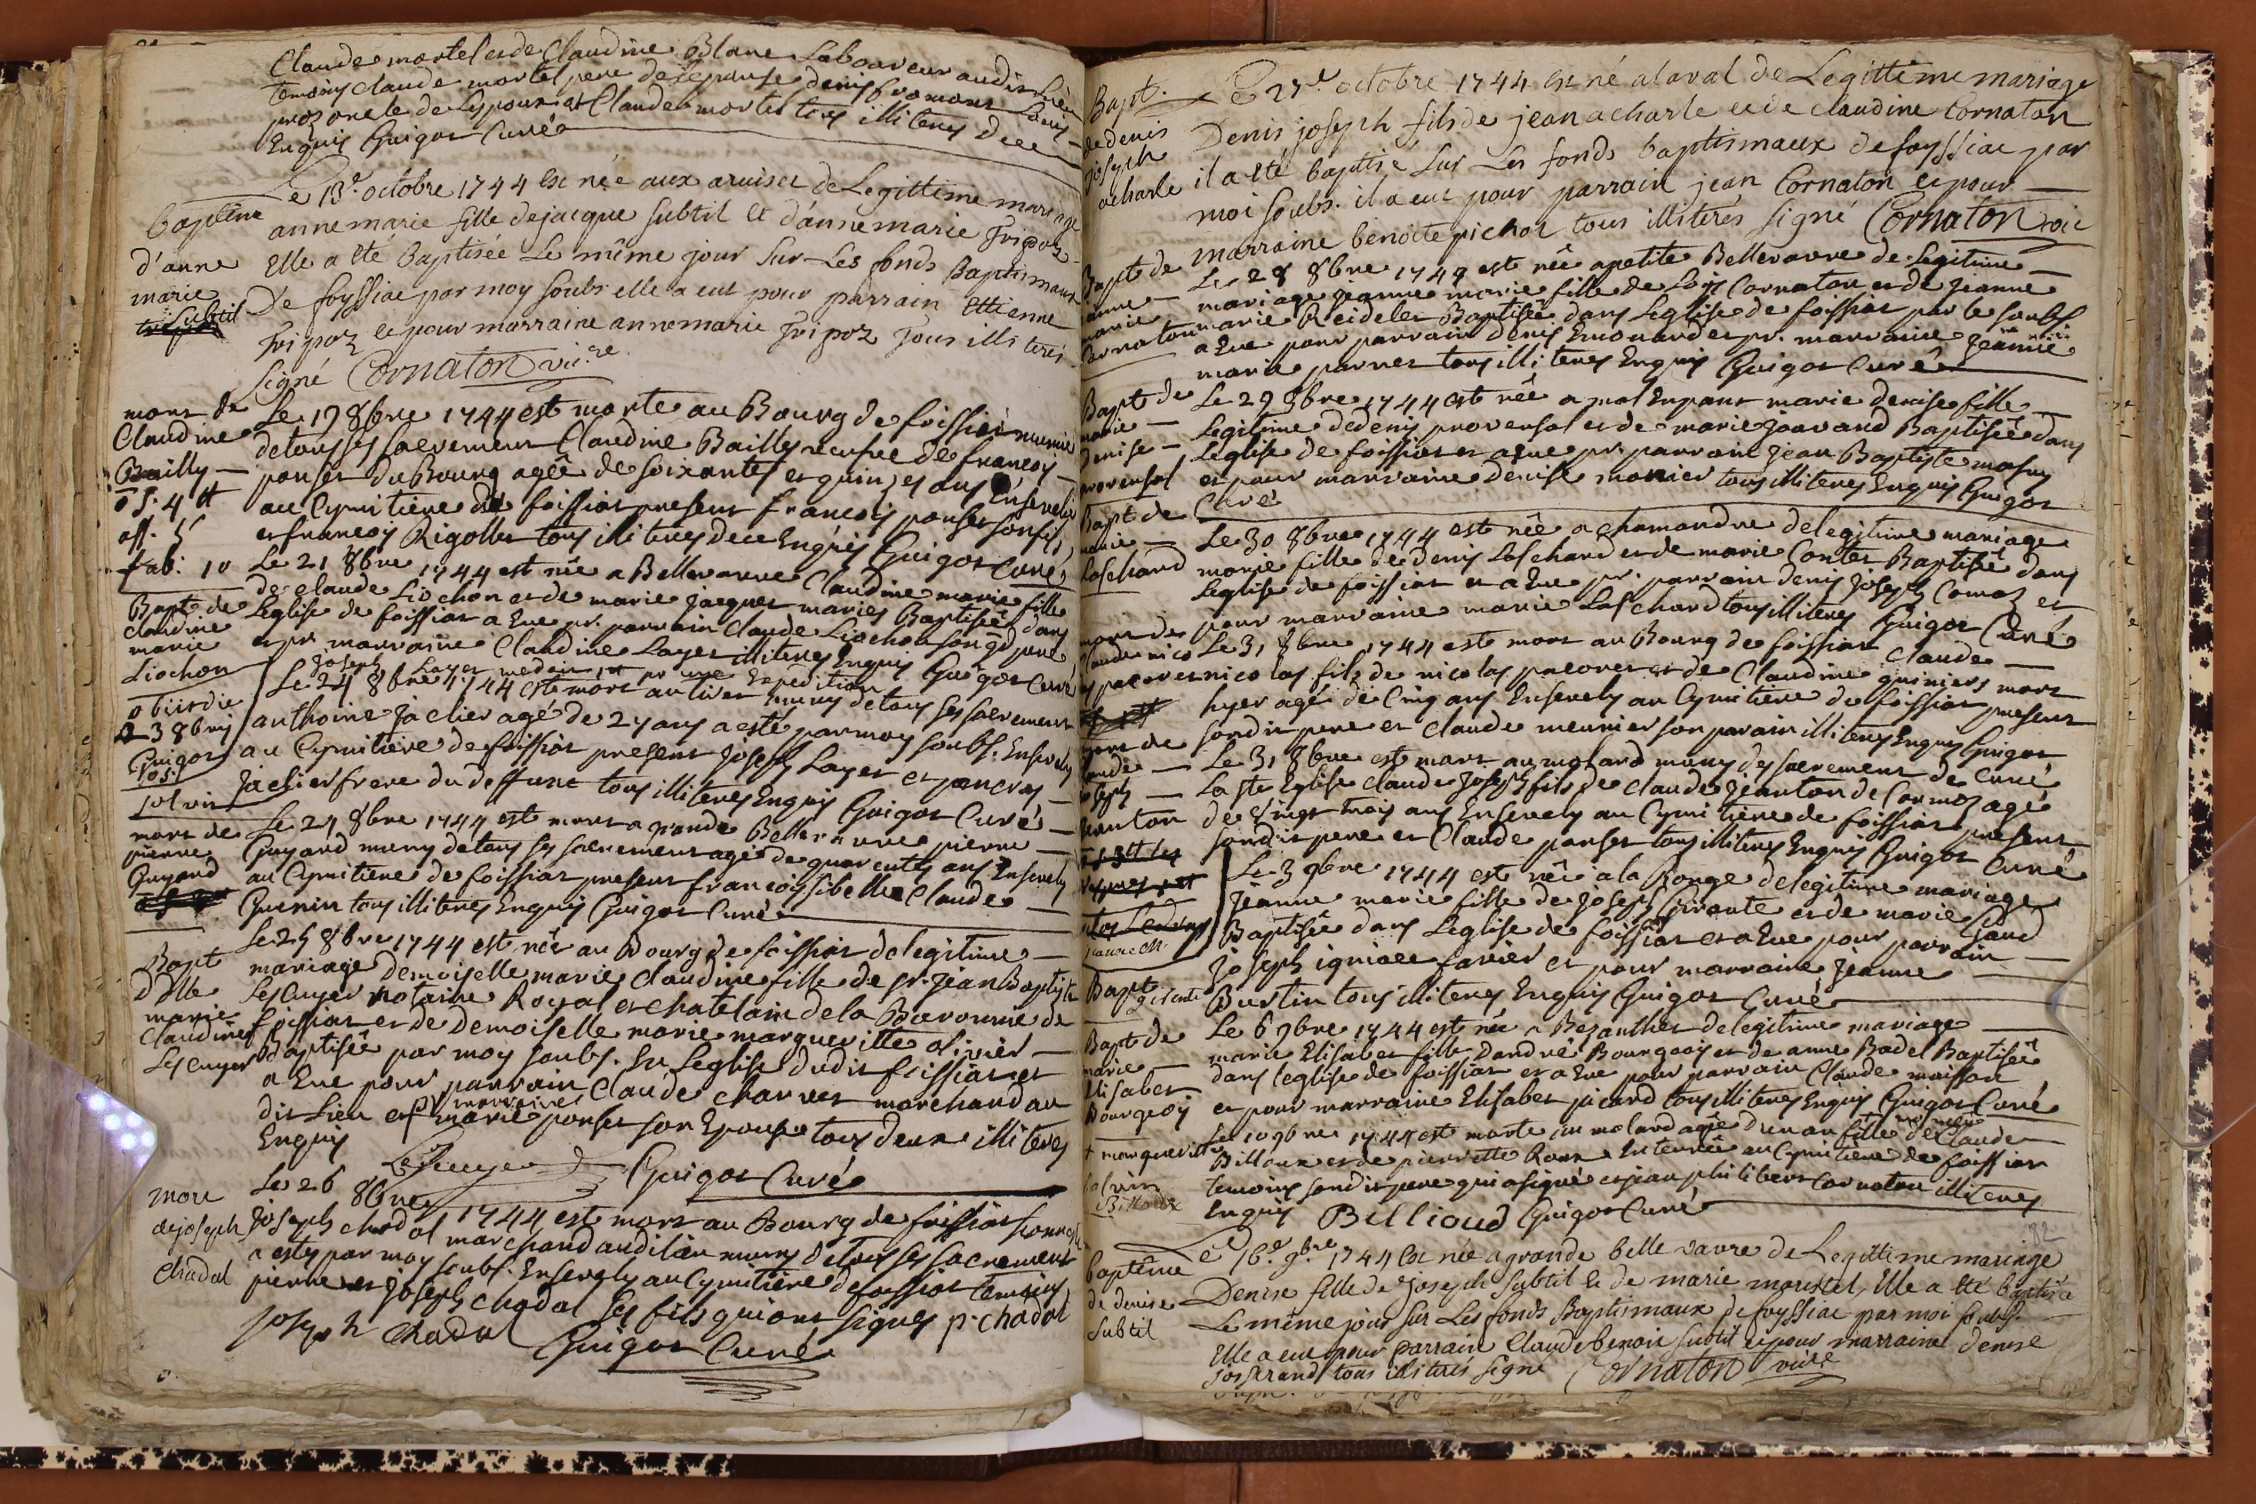 Claude mortel et de Claudine Blanc Laboureur audit Lieu
temoins claude mortel pere de lepouse denis fromont
oncle de Lepoux et Claude mortel tous illiteres de ce
Enquis Guigot Curé
Baptême
d'anne
marie
subtil
Le 13e octobre 1744 est née aux aruises de Legittime mariage
annemarie fille de jacque subtil et d'annemarie Fripoz
Elle a été Baptisée Le même jour Sur Les fonds Baptismaux
De foyssiac par moy soubs. elle a eut pour parrain Ettienne
Fripoz et pour marraine annemarie Fripoz Tous illiterés
Signé Cornaton vic.re
mort de
Claudine
Bailly
Le 19 8bre 1744 est morte au Bourg de foissiat munie
de tous ses sacrement Claudine Bailly veufve de francois
ponset du Bourg agêe de soixantes et quinzes ans Ensevelie
au Cymitiere de foissiat present francois ponset son fils
et francois Rigollet tous illiteres de ce Enquis Guigot Curé
Bapt de
claudine
marie
Liochon
Le 21 8bre 1744 est née a Bellevavre Claudine marie fille
de claude Liochon et de marie jacquet mariés Baptisée dans
Leglise de foissiat a Eue pr. parrain Claude Liochon son gd pere
et pr. marraine Claudine Layet illiteres Enquis Guigot Curé
Le 24 8bre 1744 est mort au tiret muny de tous ses sacrement
anthoine jaclier agé de 27 ans a esté par moy soubs. Ensevely
au Cymitiere de foissiat present Joseph Layet et pancras
jaclier frere du deffunt tous illiteres Enquis Guigot Curé
mort de
pierre
Guyard
Le 24 8bre 1744 est mort a grande Bellevavre pierre
Guyard muny de tous ses sacrement agé de quarentes ans Ensevely
au Cymitiere de foissiat present francois sibelle Claude
Guerin tous illiteres Enquis Guigot Curé
Bapt
Dlle
marie
Claudine
Lescuyer
Le 25 8bre 1744 est née au Bourg de foissiat de legitime
mariage demoiselle marie claudine fille de sr. jean Baptiste
Lescuyer notaire Royal et chatelain de la Baronnie de
foissiat et de Demoiselle marie marguerite olivier
Baptisée par moy soubs. En Leglise dudit foissiat et
a Eue pour parrain Claude charvet marchand au
dit Lieu et pr marraine marie ponset son Epouse tous deux illiteres
Enquis Lescuyer Guigot Curé
mort
de joseph
Chadal
Le 26 8bre 1744 est mort au Bourg de foissiat honneste
Joseph chadal marchand audit lieu muny de tous ses sacrement
a esté par moy soubs. Ensevely au Cymitiere de foissiat temoins
pierre et joseph chadal ses fils qui ont signés p. chadal
joseph chadal Guigot Curé
Bapt.
de denis
joseph
acharle
Le 27e octobre 1744 est né a laval de Legittime mariage
Denis joseph fils de jean acharle et de claudine Cornaton
il a été baptisé Sur Les fonds baptismaux de foyssiac par
moi soubs. il a eut pour parrain jean Cornaton et pour
marraine benoite pichot tous illiterés signé Cornaton vic
Bapt de
anne
marie
Cornaton
Le 28 8bre 1744 est née a petite Bellevavre de legitime
mariage jeanne marie fille de Loïs Cornaton et de jeanne
marie Reidelet Baptisée dans Leglise de foissiat par le soubs
a Eue pour parrain denis Emouard et pr. marraine jeanne
marie parnet tous illiteres Enquis Guigot Curé
Bapt de
marie
denise
provensal
Le 29 8bre 1744 est née a mal Enpant marie denise fille
Legitime de denis provensal et de marie joavand Baptisée dans
Leglise de foissiat et a Eue pr. parrain jean Baptiste
et pour marraine denise monier tous illiteres Enquis Guigot
Curé
Bapt de
marie
Laschard
Le 30 8bre 1744 est née a chamandre de legitime mariage
marie fille de denis Laschard et de marie Contet Baptisée dans
Leglise de foissiat et a Eue pr. parrain denis joseph Comaz et
pour marraine marie Laschard tous illiteres Guigot Curé
Le 31 8bre 1744 est mort au Bourg de foissiat claude
nicolas fils de nicolas pacoret et de Claudine guiniers mort
hyer agé de Cinq ans Ensevely au Cymitiere de foissiat present
sondit pere et claude meunier son parain illiteres Enquis Guigot
Curé
Le 31 8bre est mort au molard muny des sacrement de
La ste Eglise claude Joseph fils de claude jeanton de Cormoz agé
de Vingt trois ans Ensevely au Cymitiere de foissiat present
sondit pere et Claude ponset tous illiteres Enquis Guigot Curé
Le 3 9bre 1744 est née a la Ronge de legitime mariage
jeanne marie fille de joseph pirante et de marie
Baptisée dans Leglise de foissiat et a Eue pour parrain
joseph ignace favier et pour marraine jeanne
Burtin tous illiteres Enquis Guigot Curé
Bapt de
marie
Elisabet
Bourgeois
Le 6 9bre 1744 est née a Bezanthet de legitime mariage
marie Elisabet fille D'andré Bourgeois et de anne Badel Baptisée
dans leglise de foissiat et a Eue pour parrain Claude moisson
et pour marraine Elisabet picard tous illiteres Enquis Guigot Curé
Billoux
Le 10 9bre 1744 est morte au molard agée d'un an fille de Claude
Billoux et de pierrette Roux Enterrée au Cymitiere de foissiat
temoins sondit pere qui a signé et jean philibert Cornaton illiteres
Enquis Billioud Guigot Curé
82
baptême
de denise
Subtil
Le 16e 9bre 1744 est née a grande belle vavre de Legittime mariage
Denise fille de joseph Subtil et de marie moristel, Elle a été baptisée
Le même jour Sur Les fonds Baptismaux de foyssiac par moi soubs.
Elle a eut pour parrain Claude benoit subtil et pour marraine denise
josserand tous illiterés signé Cornaton vicre